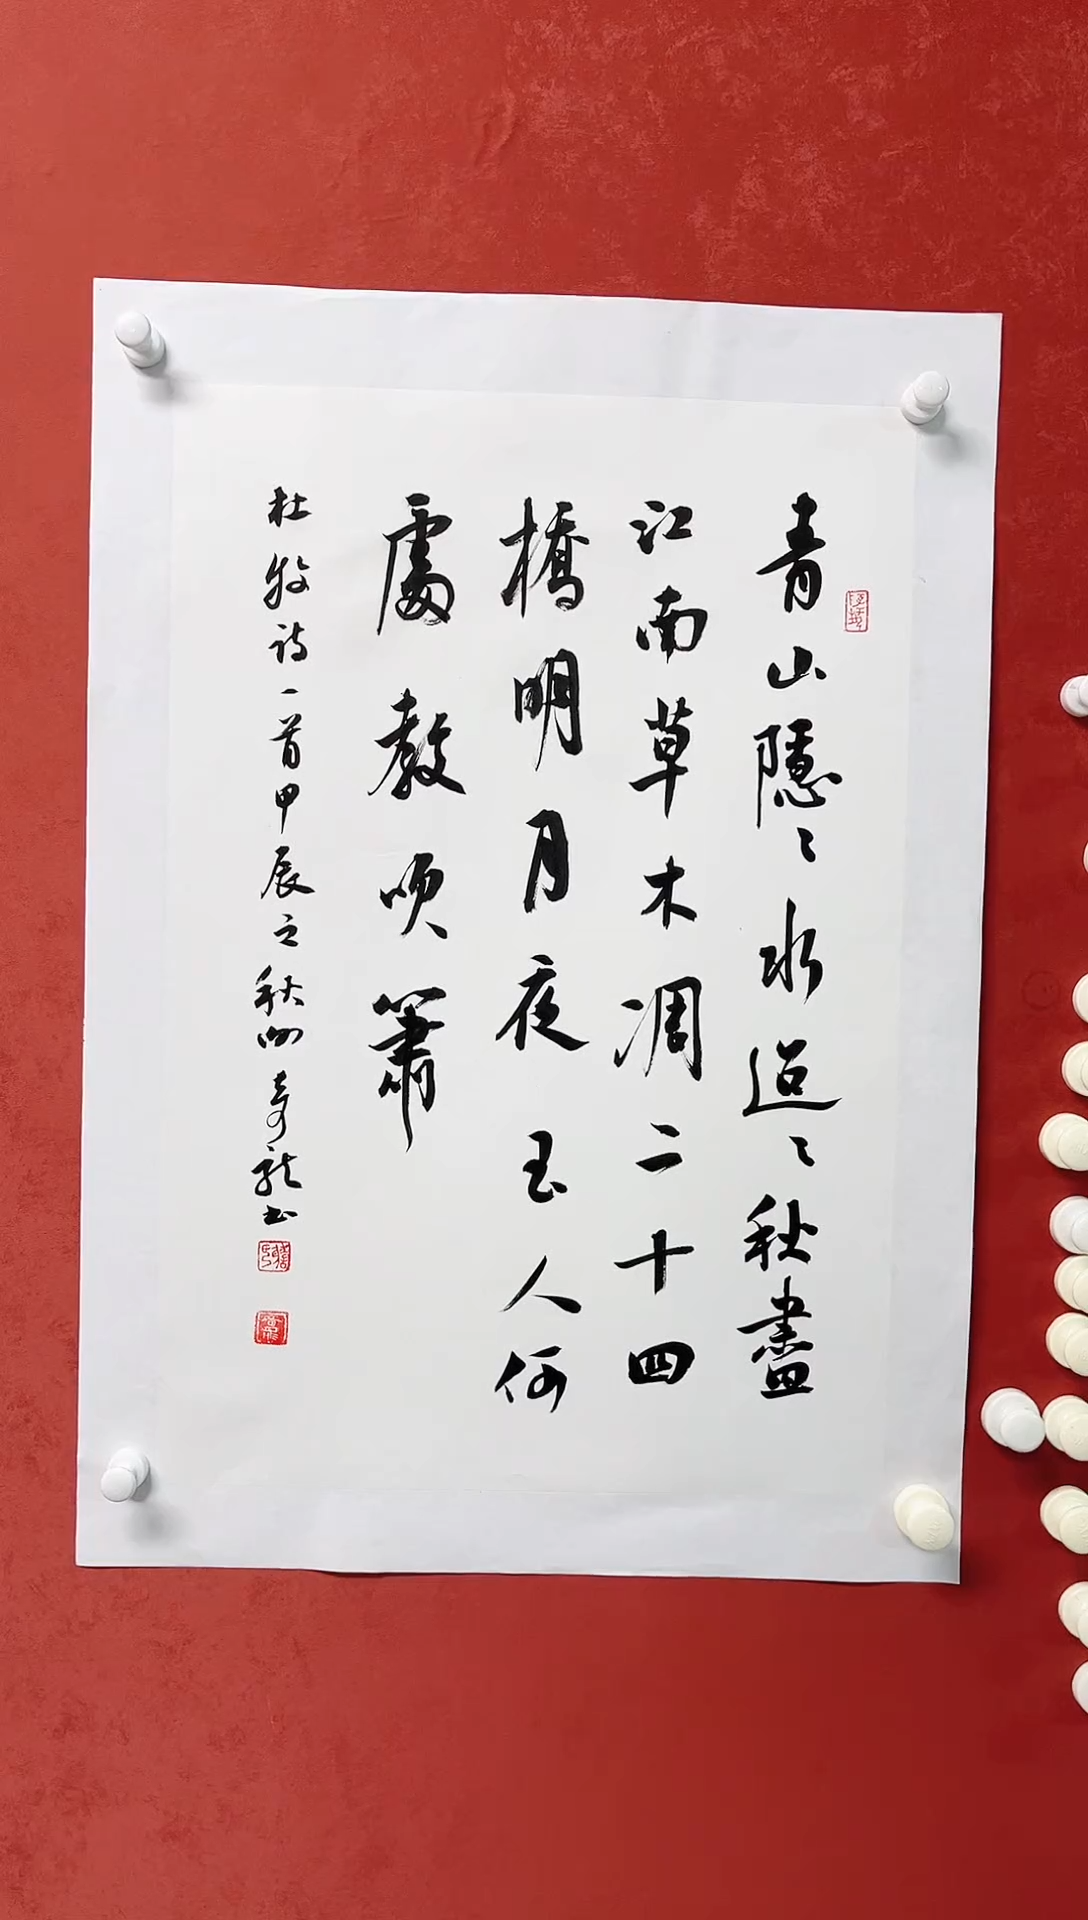 青山隱〻水迢〻秋盡
江南草木凋二十四
橋明月夜玉人何
處教吹簫
杜牧诗一首甲辰之秋奇龍书